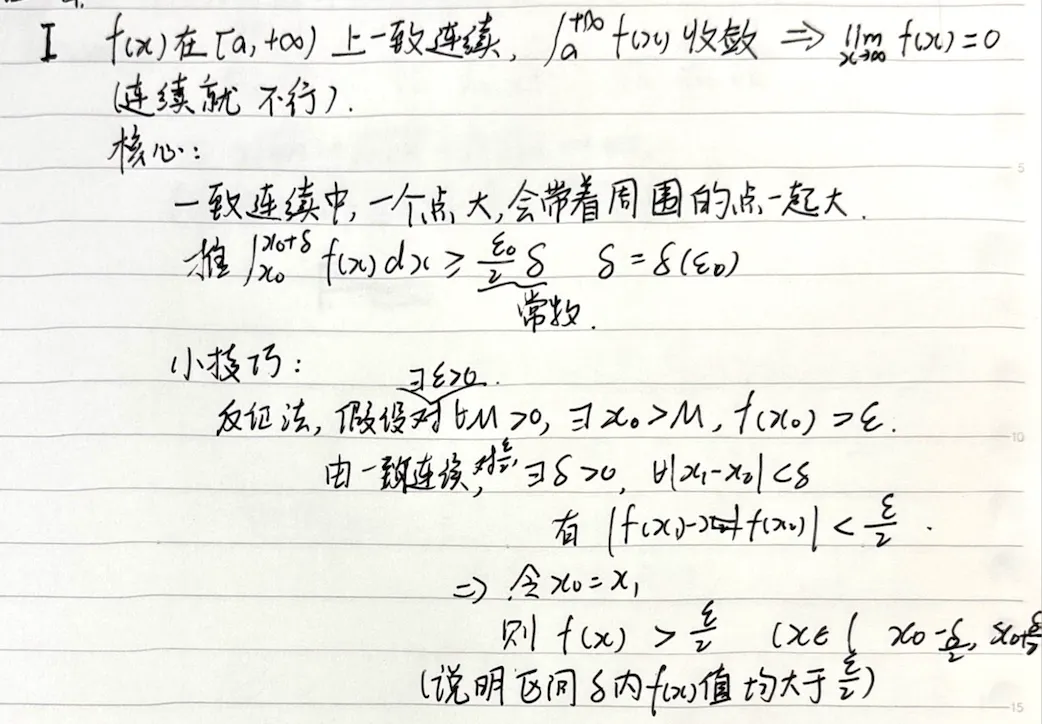 I f(x)在[a,+∞)上一致连续, ∫_a^{+∞} f(x) 收敛 ⇒ lim_{x→∞} f(x)=0
(连续就不行).
核心:
一致连续中,一个点大,会带着周围的点一起大.
推 ∫_{x₀}^{x₀+δ} f(x)dx ≥ ε₀/2 δ δ=δ(ε₀)
常数.
小技巧:
∃ε>0.
反证法,假设对∀M>0, ∃x₀>M, f(x₀)>ε.
由一致连续,对ε/2, ∃δ>0, ∀|x₁-x₂|<δ
有 |f(x₁)-f(x₂)| < ε/2 .
⇒ 令x₀=x₁
则 f(x) > ε/2 (x∈( x₀-δ/2, x₀+δ/2
(说明区间δ内f(x)值均大于ε/2)
5
10
15